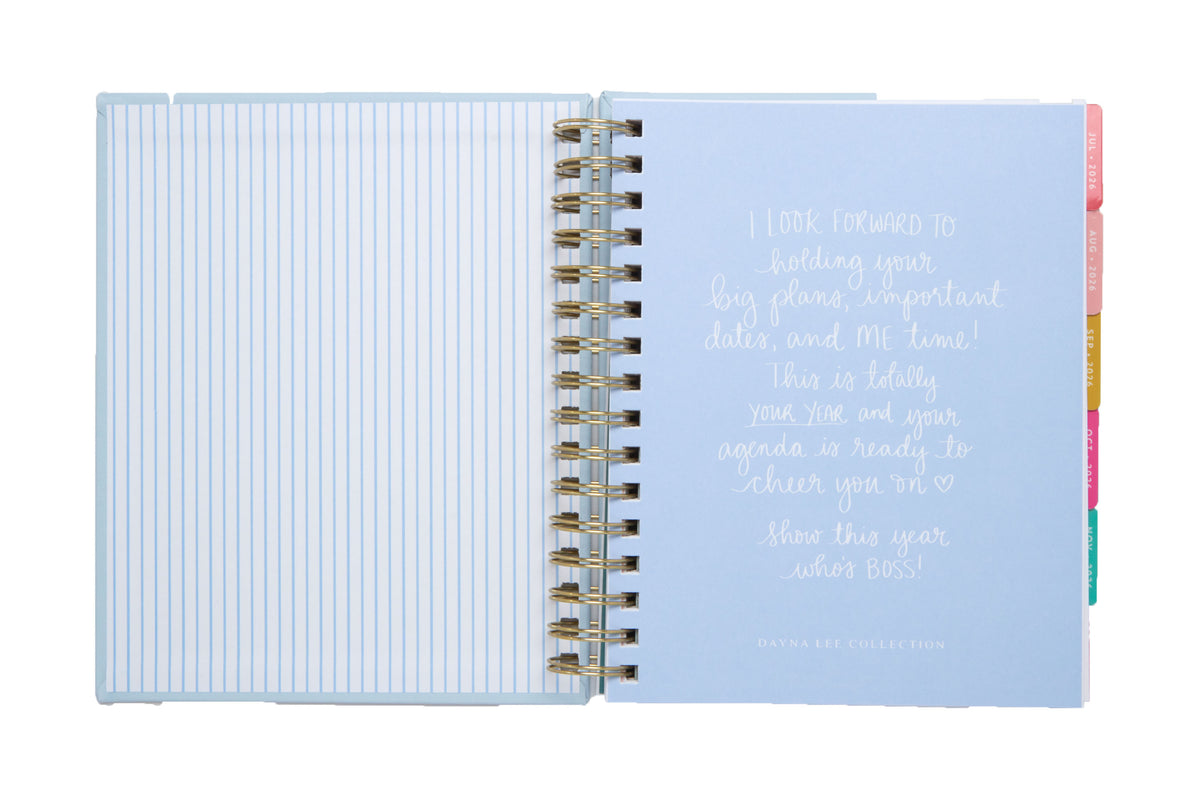 I LOOK FORWARD TO
holding your
big plans, important
dates, and ME time!
This is totally
YOUR YEAR and your
agenda is ready to
cheer you on ♡
Show this year
who's BOSS!
DAYNA LEE COLLECTION
JUL • 2026
AUG • 2026
SEP • 2026
OCT • 2026
NOV • 2026